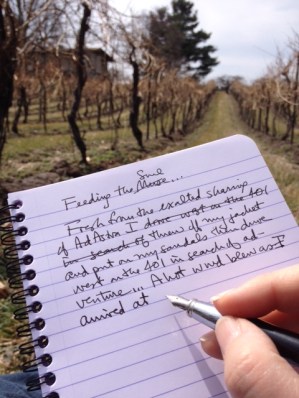 Feeding the ...
Fresh from the exalted sharing
of AdAstra I drove west on the 401
in search of threw off my jacket
and put on my sandals then drove
west on the 401 in search of ad-
venture... A hot wind as I
arrived at